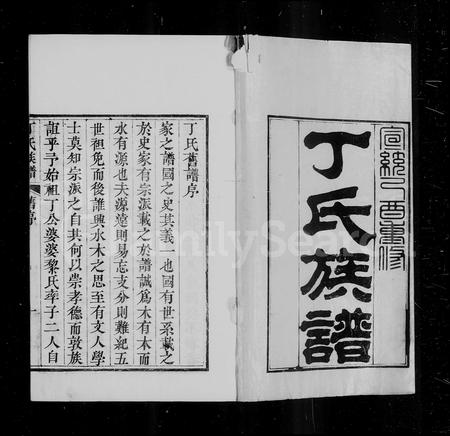 宣統己酉重修
丁氏族譜
丁氏舊譜序
家之譜國之史其義一也國有世系載之
於史家有宗派載之於譜誠爲木有本而
水有源也夫源遠則易忘支分則難紀五
世祖免而後誰興水木之思至有文人學
士莫知宗派之自其何以崇孝德而敦族
誼乎予始祖丁公婆婆黎氏率子二人自
丁氏族譜
舊序
一
FamilySearch